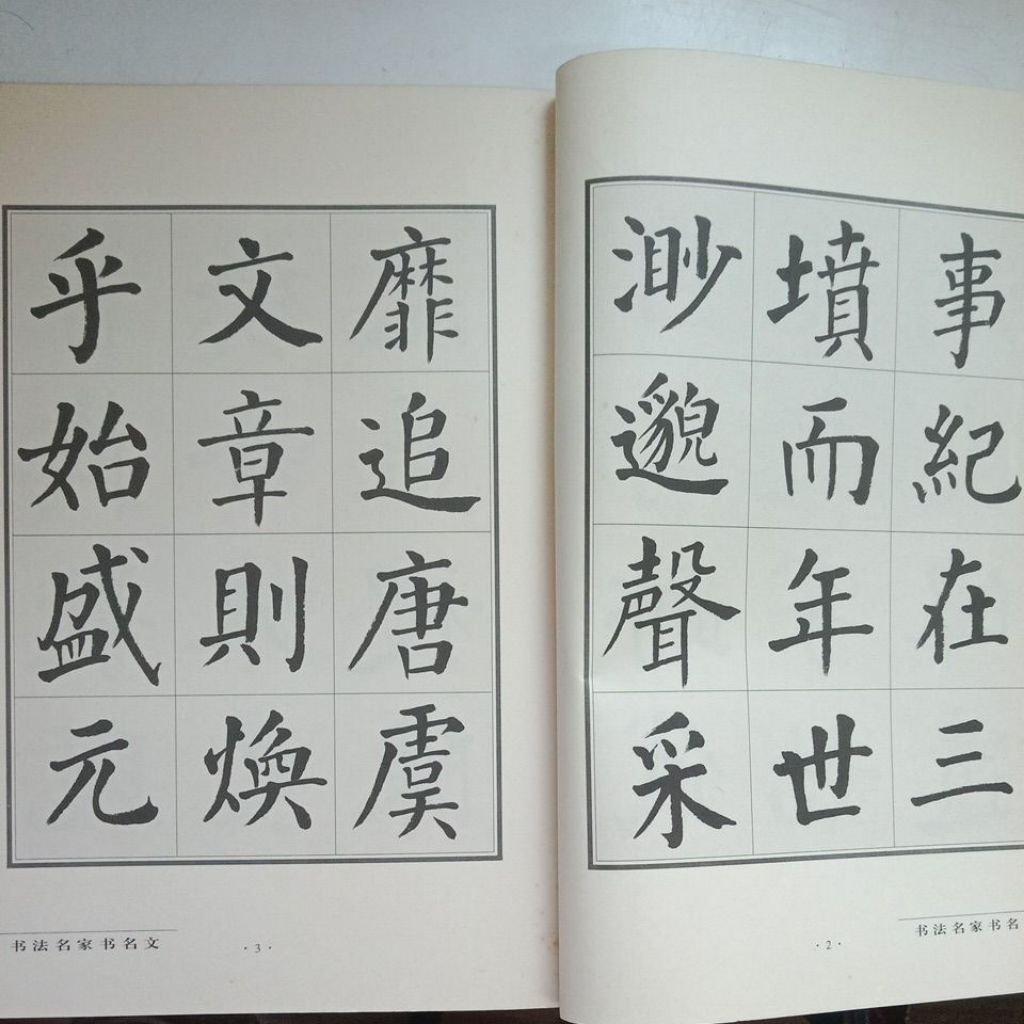 事紀在三
墳而年世
渺邈聲采
书法名家书名
·2·
靡追唐虞
文章則煥
乎始盛元
书法名家书名文
·3·